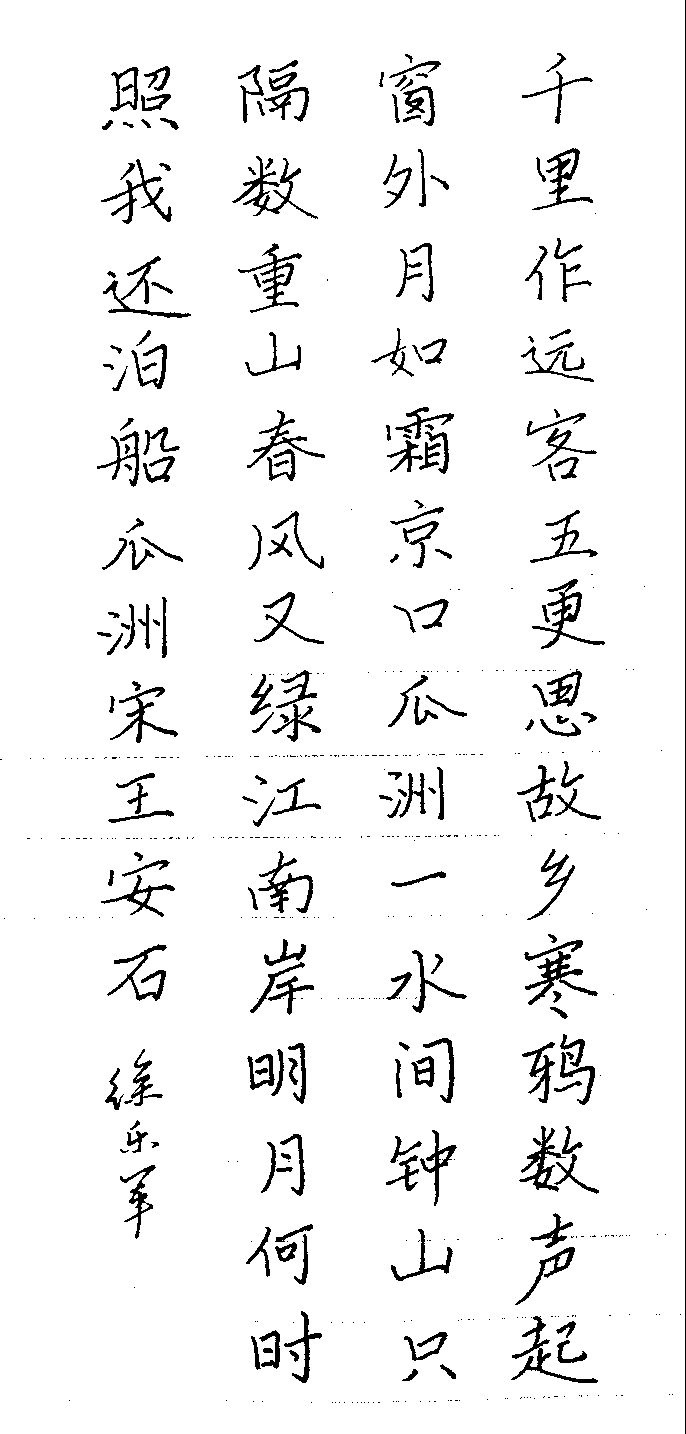 千里作远客五更思故乡寒鸦数声起
窗外月如霜京口瓜洲一水间钟山只
隔数重山春风又绿江南岸明月何时
照我还泊船瓜洲宋王安石
徐乐军